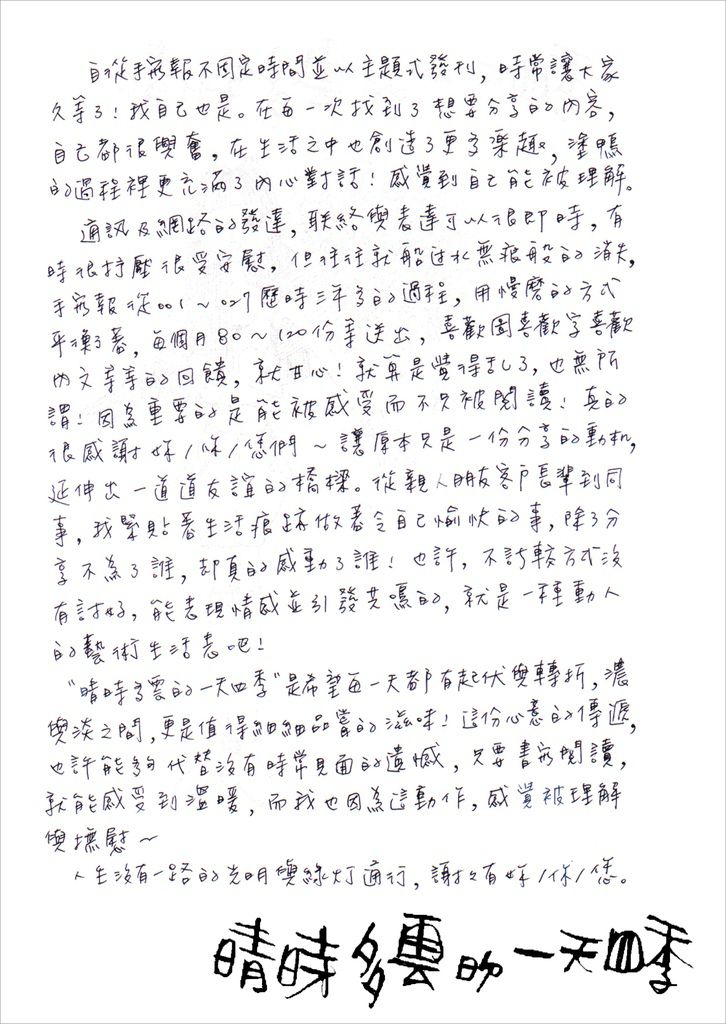 自從手寫報不固定時間並以主題式發刊，時常讓大家
久等了！我自己也是。在每一次找到了想要分享的內容，
自己都很興奮，在生活之中也創造了更多樂趣，塗鴨
的過程裡更充滿了內心對話！感覺到自己能被理解。
通訊及網路的發達，联絡與表達可以很即時，有
時很抒壓很受安慰，但往往就船过水無痕般的消失，
手寫報從001～027歷時三年多的過程，用慢磨的方式
平衡著，每個月80～120份等送出，喜歡圖喜歡字喜歡
內文等等的回饋，就甘心！就算是覺得乱了，也無所
謂！因為重要的是能被感受而不只被閱讀！真的
很感謝妳/你/您們～讓原本只是一份分享的動机，
延伸出一道道友誼的橋樑。從親人朋友客戶長輩到同
事，我緊貼著生活痕跡做著令自己愉快的事，除了分
享不為了誰，却真的感動了誰！也許，不計較方式沒
有討好，能表現情感並引發共鳴的，就是一種動人
的藝術生活志吧！
"晴時多雲的一天四季"是希望每一天都有起伏與轉折，濃
與淡之間，更是值得細細品嘗的滋味！這份心意的傳遞，
也許能夠代替沒有時常見面的遺憾，只要書寫閱讀，
就能感受到溫暖，而我也因為這動作，感覺被理解
與撫慰～
人生沒有一路的光明與綠灯通行，謝谢有妳/你/您。
晴時多雲的一天四季